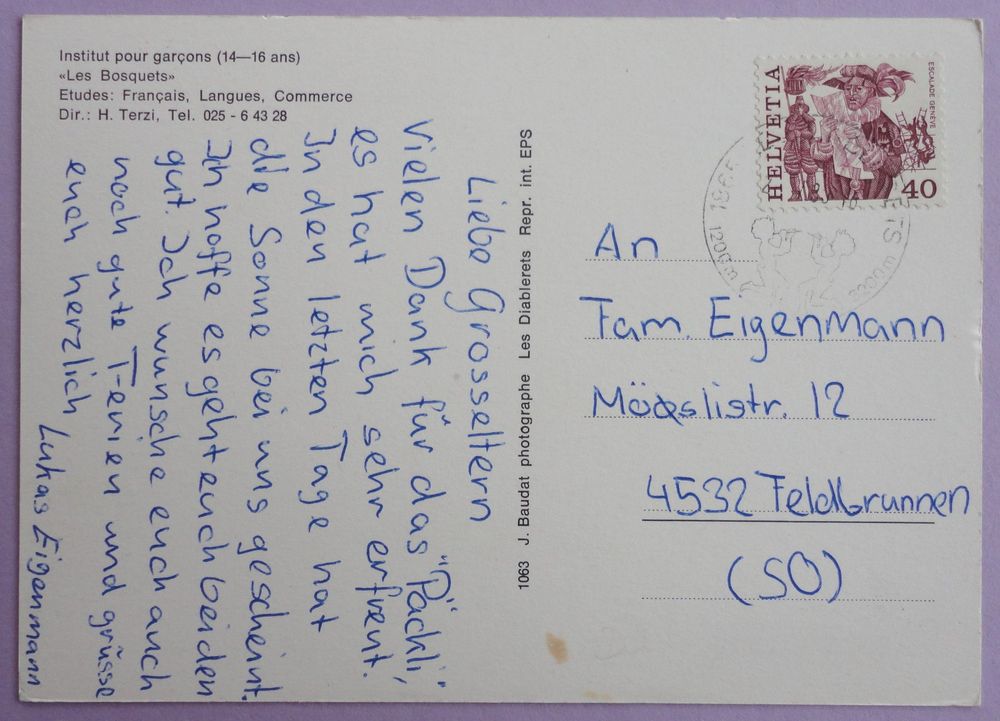 Institut pour garçons (14—16 ans)
«Les Bosquets»
Etudes: Français, Langues, Commerce
Dir.: H. Terzi, Tel. 025 - 6 43 28
Liebe Grosseltern
Vielen Dank für das "Päckli",
es hat mich sehr erfreut.
In den letzten Tage hat
die Sonne bei uns gescheint.
Ich hoffe es geht euch beiden
gut. Ich wünsche euch auch
noch gute Ferien und grüsse
euch herzlich
Lukas Eigenmann
1063 J. Baudat photographe Les Diablerets Repr. int. EPS
HELVETIA
ESCALADE GENÈVE
40
1200m
3200m
An
Fam. Eigenmann
12
4532 Feldbrunnen
(SO)